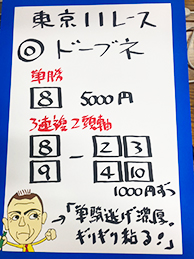 東京11レース
◎ ドーブネ
単勝
8 5000円
3連複2頭軸
8 2 3
9 - 4 10
1000円ずつ
→「単騎逃げ濃厚。
ギリギリ粘る!」